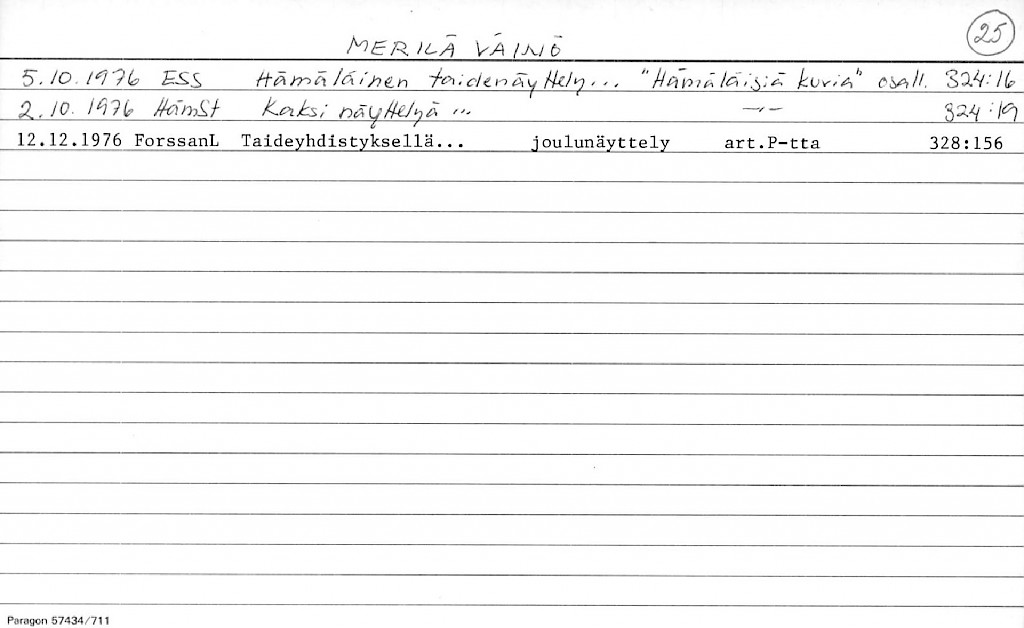 25
MERILÄ VÄINÖ
5.10.1976 ESS Hämäläinen taidenäyttely... "Hämäläisiä kuvia" osall. 324:16
2.10.1976 HämSt Kaksi näyttelyä ... —"— 324:19
12.12.1976 ForssanL Taideyhdistyksellä... joulunäyttely art.P-tta 328:156
Paragon 57434/711